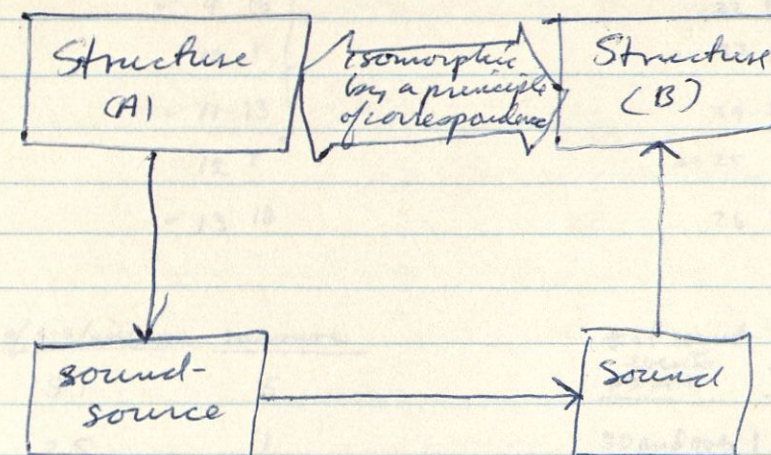 Structure
(A)
Isomorphic
by a principle
of correspondence
Structure
(B)
sound-
source
Sound